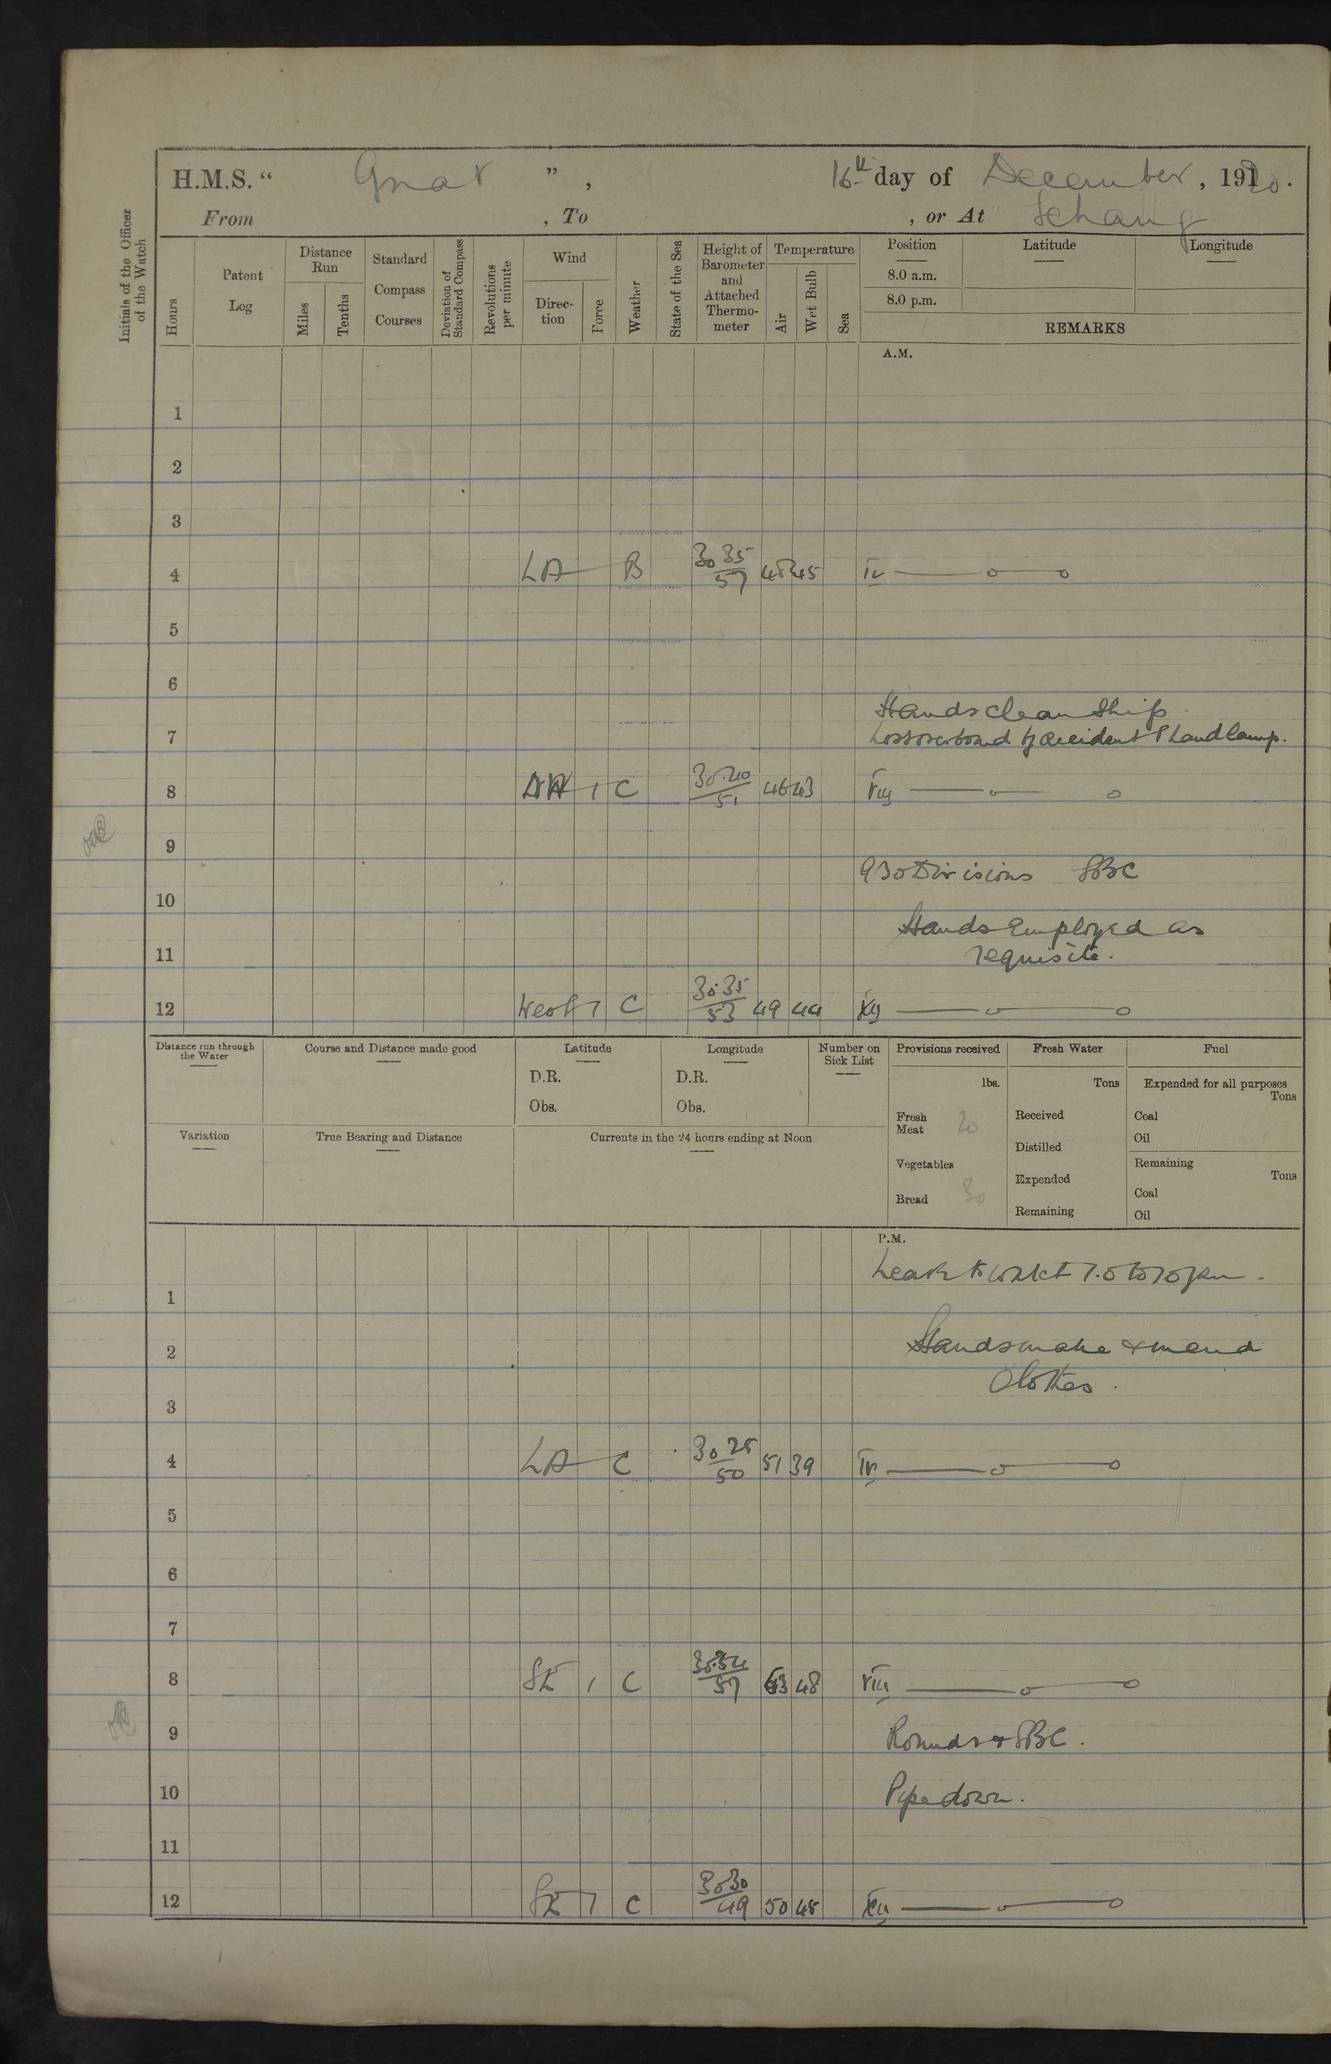 H.M.S. “ Gnat ” , 16th day of December , 1920 .
From , To , or At Ichang
Initials of the Officer of the Watch
Hours
Patent Log
Distance Run
Miles
Tenths
Standard Compass Courses
Deviation of Standard Compass
Revolutions per minute
Wind
Direc-tion
Force
Weather
State of the Sea
Height of Barometer and Attached Thermo-meter
Temperature
Air
Wet Bulb
Sea
Position Latitude Longitude
8.0 a.m.
8.0 p.m.
REMARKS
A.M.
1
2
3
4 LA B 30 35 / 57 48 45 IV
5
6
Hands clean Ship
7 Lost overboard by accident 1 hand lamp.
8 1 C 30.40 / 51 46 43 VIII
9
930 Divisions SBC
10
Hands employed as
11 requisite.
12 West 1 C 30.35 / 53 49 44 XII
Distance run through the Water
Course and Distance made good
Latitude
D.R.
Obs.
Longitude
D.R.
Obs.
Number on Sick List
Provisions received
lbs.
Fresh Meat 20
Vegetables
Bread 30
Fresh Water
Tons
Received
Distilled
Expended
Remaining
Fuel
Expended for all purposes
Tons
Coal
Oil
Remaining
Tons
Coal
Oil
Variation
True Bearing and Distance
Currents in the 24 hours ending at Noon
P.M.
Leave to watch 1.0 to 7.0 pm.
1
2 Hands make & mend
clothes.
3
4 LA C 30 25 / 50 51 39 IV
5
6
7
8 SE 1 C 30.34 / 57 53 48 VIII
9 Rounds & SBC.
10 Pipe down.
11
12 SE 1 C 30 30 / 49 50 48 XII